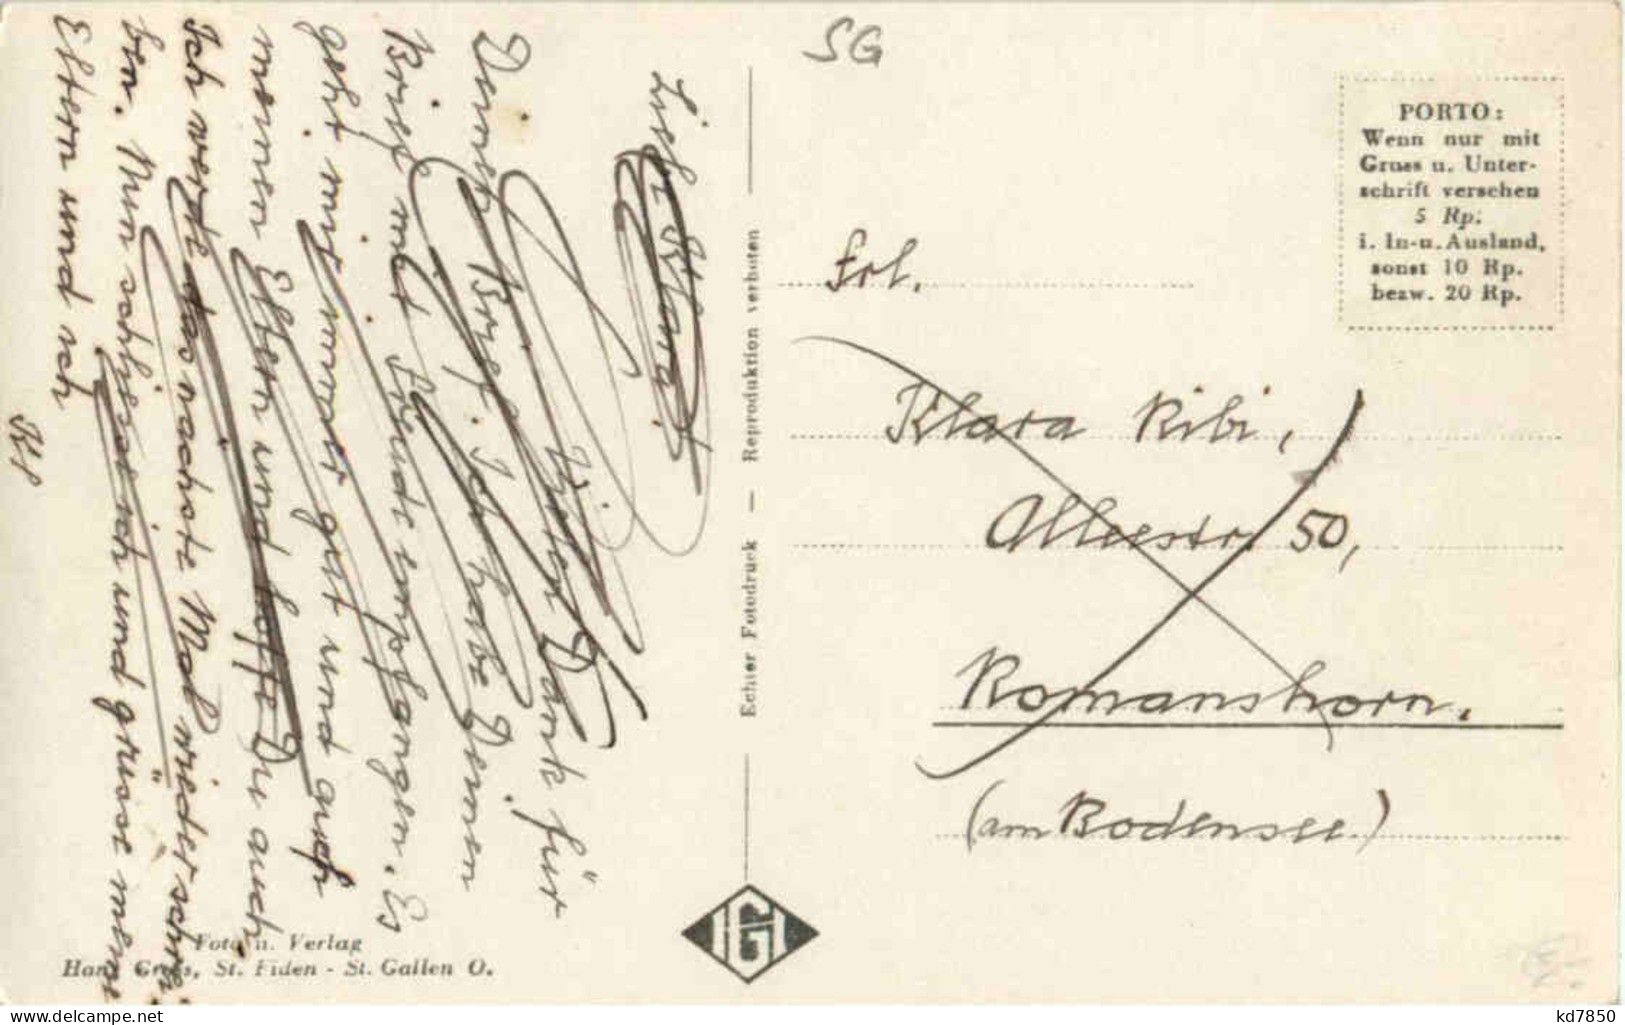 Liebe Klara!
Vielen Dank für
Deinen Brief. Ich habe Deinen
Brief mit Freude empfangen. Es
geht mir immer gut und auch
meinen Eltern und hoffe Du auch.
Ich werde das nächste Mal wieder schrei-
ben. Nun schliesse ich und grüsse meine
Eltern und ich
SG
PORTO:
Wenn nur mit
Gruss u. Unter-
schrift versehen
5 Rp.
i. In-u. Ausland,
sonst 10 Rp.
bezw. 20 Rp.
Frl.
Klara Ribi,
Alleestr. 50,
Romanshorn.
(am Bodensee.)
Echter Fotodruck — Reproduktion verboten
Foto u. Verlag
Hans Gross, St. Fiden - St. Gallen O.
kd7850